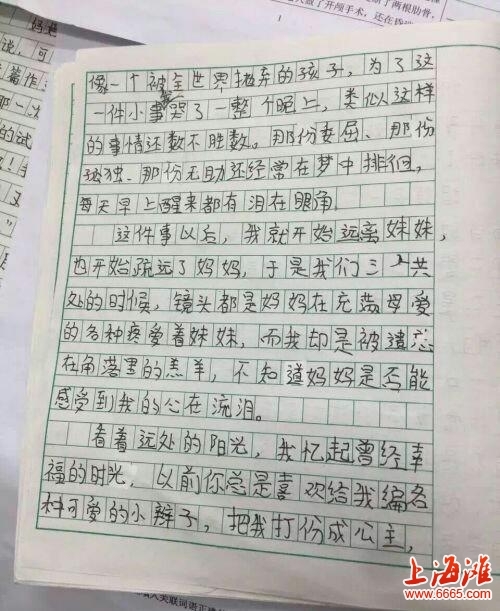 两根肋骨，
做了开颅手术，还在昏迷
1
像一个被全世界抛弃的孩子，为了这
一件小事哭了一整个晚上，类似这样
的事情还数不胜数。那份委屈、那份
孤独、那份无助还经常在梦中排徊，
每天早上醒来都有泪在眼角。
这件事以后，我就开始远离妹妹，
也开始疏远了妈妈，于是我们三人共
处的时候，镜头都是妈妈在充满母爱
的各种疼爱着妹妹，而我却是被遗忘
在角落里的羔羊，不知道妈妈是否能
感受到我的心在流泪。
看着远处的阳光，我忆起曾经幸
福的时光，以前你总是喜欢给我编各
种可爱的小辫子，把我打份成公主，
说，可
篇作
那一次
的试
又
上海滩
www.6665.com